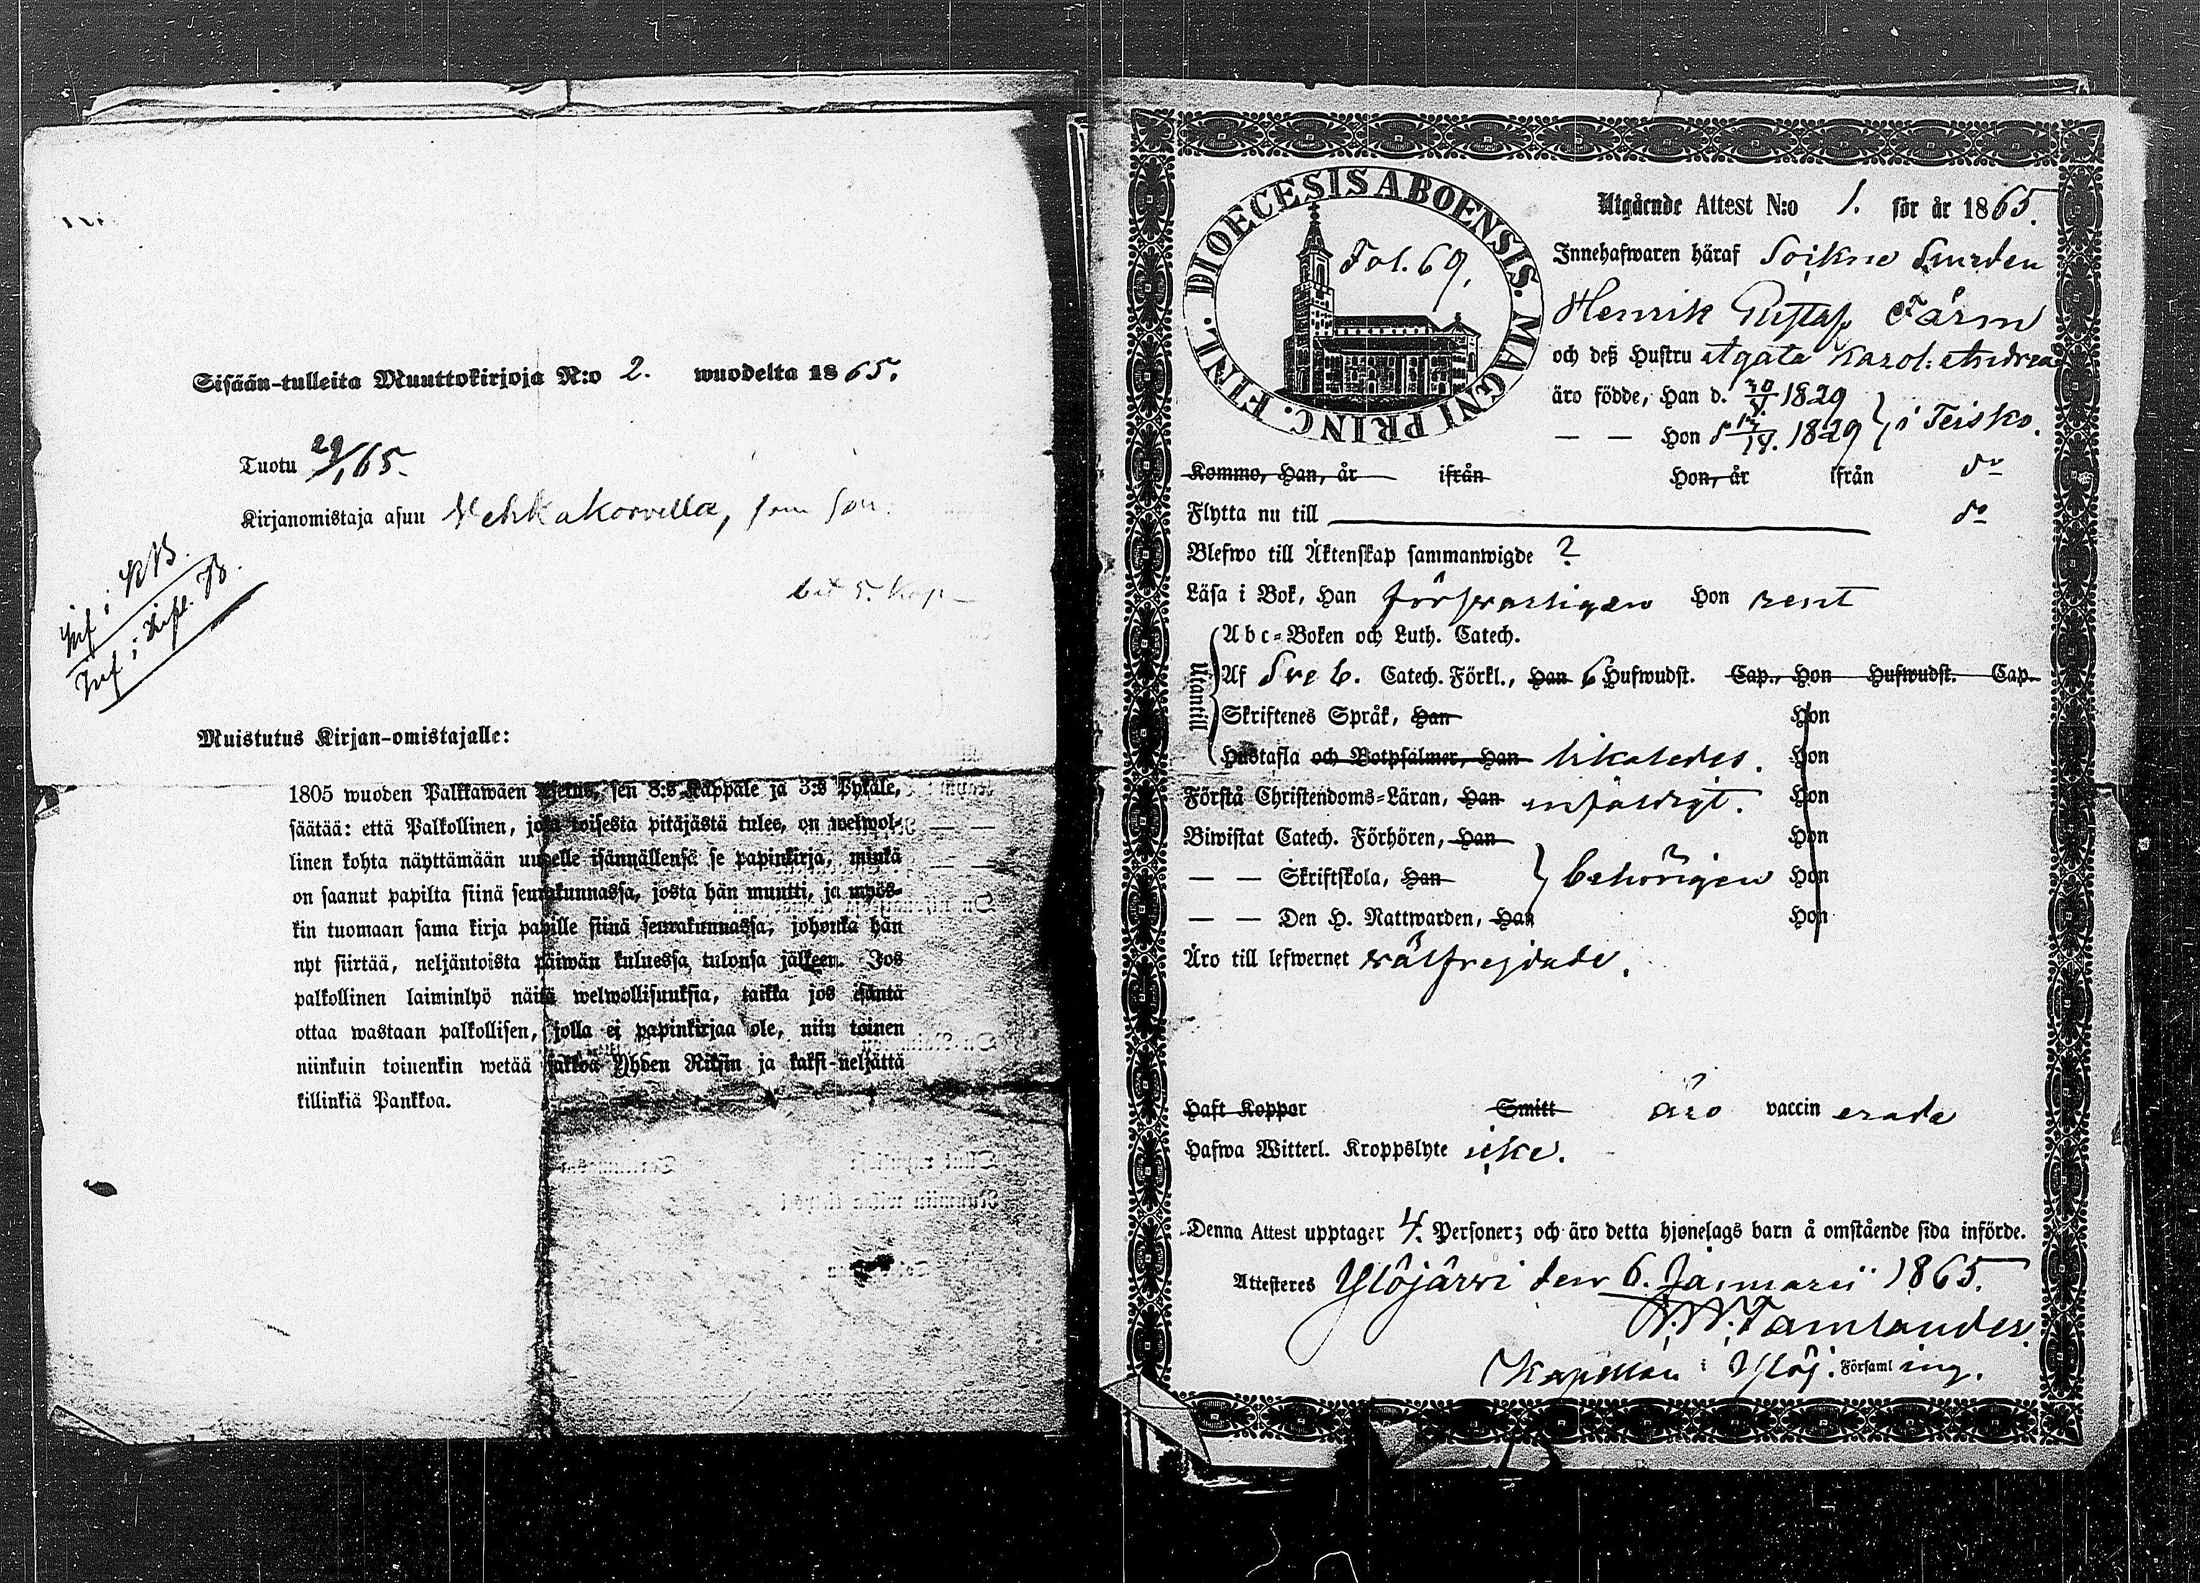 Sisään-tulleita Muuttokirjoja N:o 2. wuodelta 1865.
Tuotu 29/1 65.
Kirjanomistaja asuu Vehkakorvella, som son.
bet 5. kop
Inf i KB.
Inf: i B.
Muistutus Kirjan-omistajalle:
1805 wuoden Palkkawäen sen 8:s Kappale ja 3:s Pykäle,
säätää: että Palkollinen, joka toisesta pitäjästä tulee, on welwol-
linen kohta näyttämään uudelle isännällensä se papinkirja, minkä
on saanut papilta siinä seurakunnassa, josta hän muutti, ja myös-
kin tuomaan sama kirja papille siinä seurakunnassa, johonka hän
nyt siirtää, neljäntoista päiwän kuluessa tulonsa jälkeen. Jos
palkollinen laiminlyö näitä welwollisuuksia, taikka jos isäntä
ottaa wastaan palkollisen, jolla ei papinkirjaa ole, niin toinen
niinkuin toinenkin wetää sakkoa Yhden Riksin ja kaksi-neljättä
killinkiä Pankkoa.
FINL. DIOECESIS ABOENSIS. MAGNI PRINC.
Fol. 69.
Utgående Attest N:o 1. för år 1865.
Innehafwaren häraf
Henrik Gustaf Färm
och deß Hustru Agata Karol: Andrea
äro födde, Han d. 30/V. 1829
— — Hon d 1829 } i Teisko.
Kommo, Han, år ifrån Hon, år ifrån do
Flytta nu till do
Blefwo till Äktenskap sammanwigde ?
Läsa i Bok, Han försvarligen Hon rent
Utantill
Abc-Boken och Luth. Catech.
Af Sve b. Catech. Förkl., Han 6 Hufwudst. Cap., Hon Hufwudst. Cap.
Skriftenes Språk, Han Hon
Hustafla och Botpsalmer, Han likaledes. Hon
Förstå Christendoms-Läran, Han enfaldigt. Hon
Biwistat Catech. Förhören, Han Hon
— — Skriftskola, Han } behörigen Hon
— — Den H. Nattwarden, Han Hon
Äro till lefwernet välfrejdade.
Haft Koppor Smitt äro vaccin erade
Hafwa Witterl. Kroppslyte icke.
Denna Attest upptager 4. Personer; och äro detta hjonelags barn å omstående sida införde.
Attesteres Ylöjärvi den 6. Januarii 1865.
Tamlander
Kapellan i Ylöj. Församl ing.